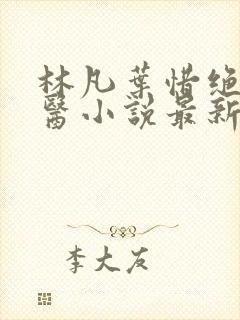 林凡葉惜绝
醫小說最新
李大友